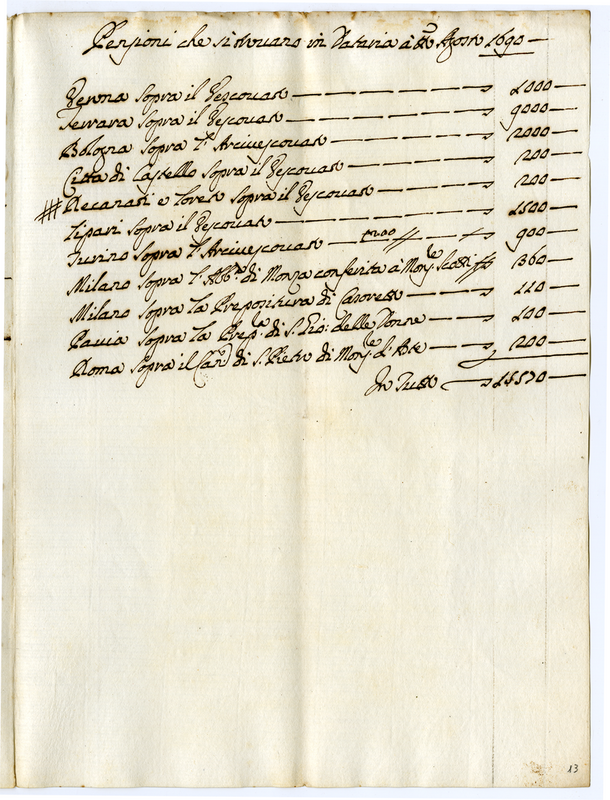 Pensioni che si trovano in Dataria à tt.º Agosto 1690 —
Verona sopra il Vescovato — 1000 —
Ferrara sopra il Vescovato — 9000 —
Bologna sopra l'Arcivescovato — 2000 —
Città di Castello sopra il Vescovato — 200 —
Recanati e Loreto sopra il Vescovato — 200 —
Lipari sopra il Vescovato — 1500 —
Turino sopra l'Arcivescovato — 900 —
Milano sopra l'Abb.ª di Monza conferita à Mons.re Scotti 360 —
Milano sopra la Prepositura di Casoretto — 110 —
Pavia sopra la Prep.ra di S. Gio: delle Donne — 100 —
Roma sopra il Can.to di S. Pietro di Mons.re d'Aste — 200 —
In Tutto — 15570 —
13